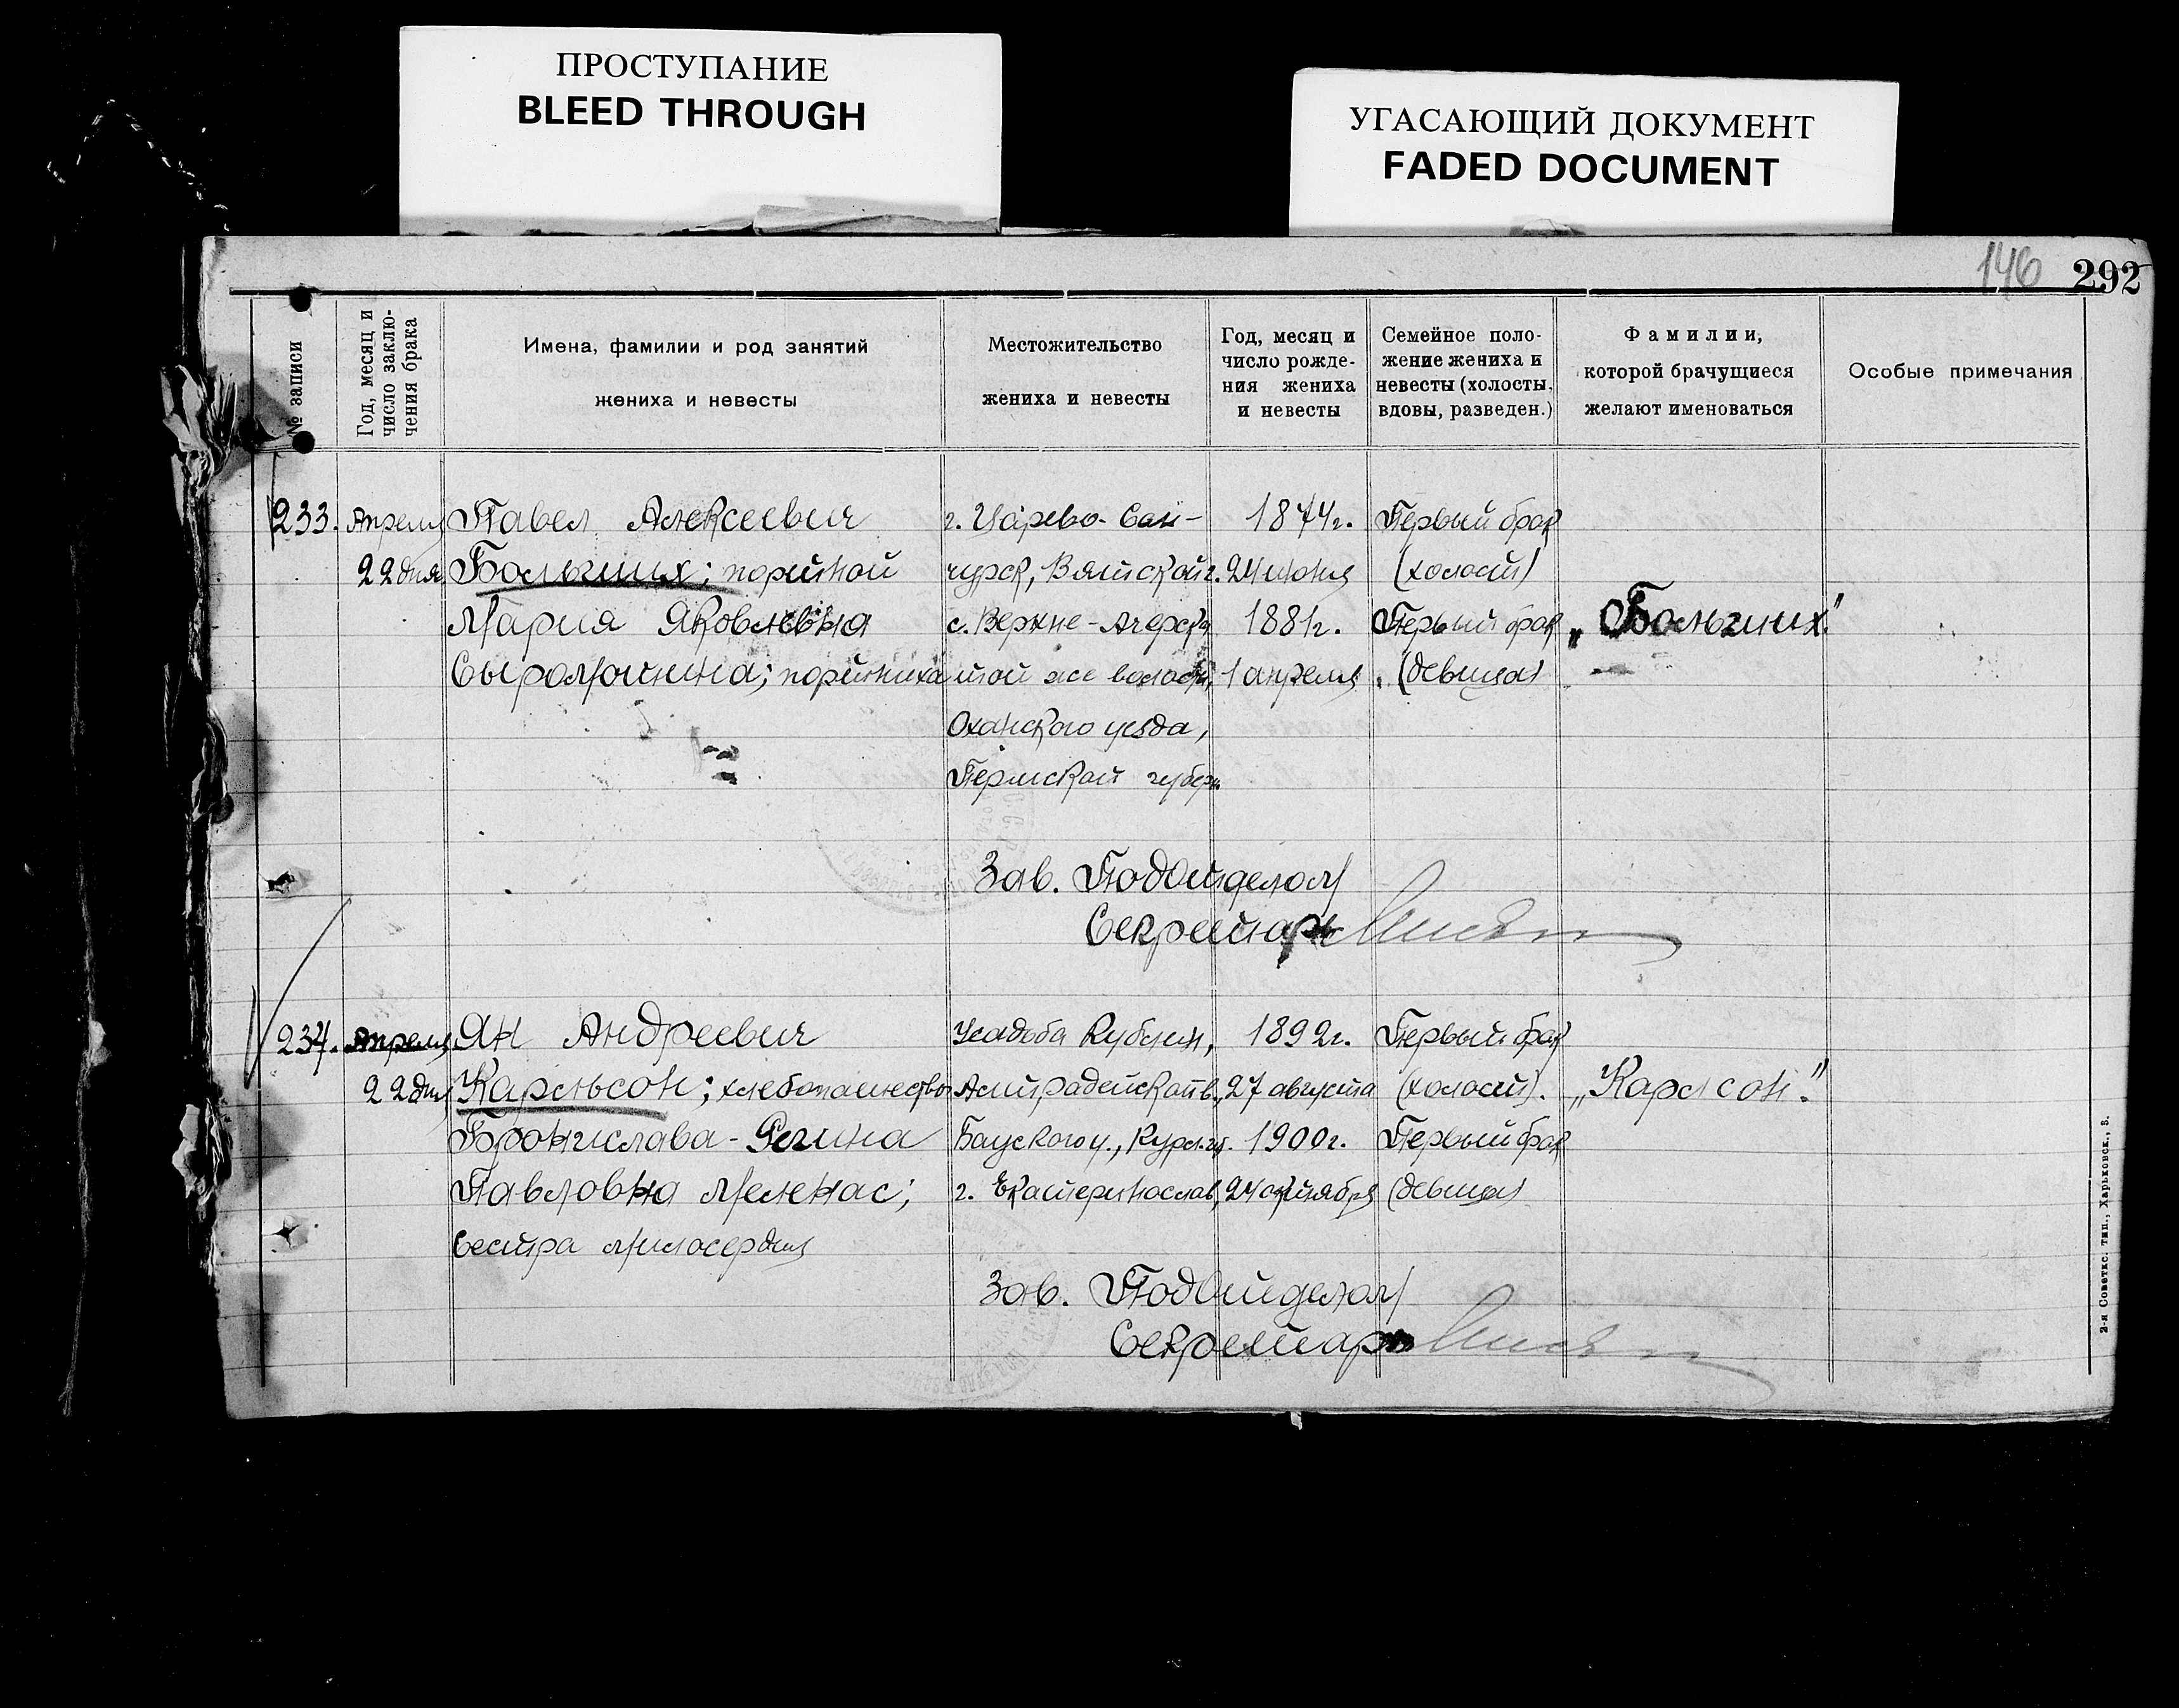 ПРОСТУПАНИЕ
BLEED THROUGH
УГАСАЮЩИЙ ДОКУМЕНТ
FADED DOCUMENT
146 292
№ записи
Год, месяц и
число заклю-
чения брака
Имена, фамилии и род занятий
жениха и невесты
Местожительство
жениха и невесты
Год, месяц и
число рожде-
ния жениха
и невесты
Семейное поло-
жение жениха и
невесты (холосты,
вдовы, разведен.)
Фамилии,
которой брачущиеся
желают именоваться
Особые примечания
233. Апреля Павел Алексеевич г. Царево-Сан- 1874г. Первый брак
22 дня Больших; портной чурск, Вятской г. 24 июня (холост)
Мария Яковлевна с. Верхне- 1881г. Первый брак „Больших“
Сыромятнина; портниха той же волости, 1 апреля (девица)
Оханского уезда,
Пермской губерн.
Зав. Подотделом
Секретарь
234. Апреля Ян Андреевич Усадьба Кублин, 1892г. Первый брак
22 дня Карльсон; хлебопашество в., 27 августа (холост). „Карлсон.“
Бронислава-Регина Баускогоу., Курл.г. 1900г. Первый брак
Павловна Меленас; г. Екатеринослав, 24 октября (девица)
Сестра милосердия
Зав. Подотделом
Секретарь
2-я Советск. тип., Харьковск., 3.